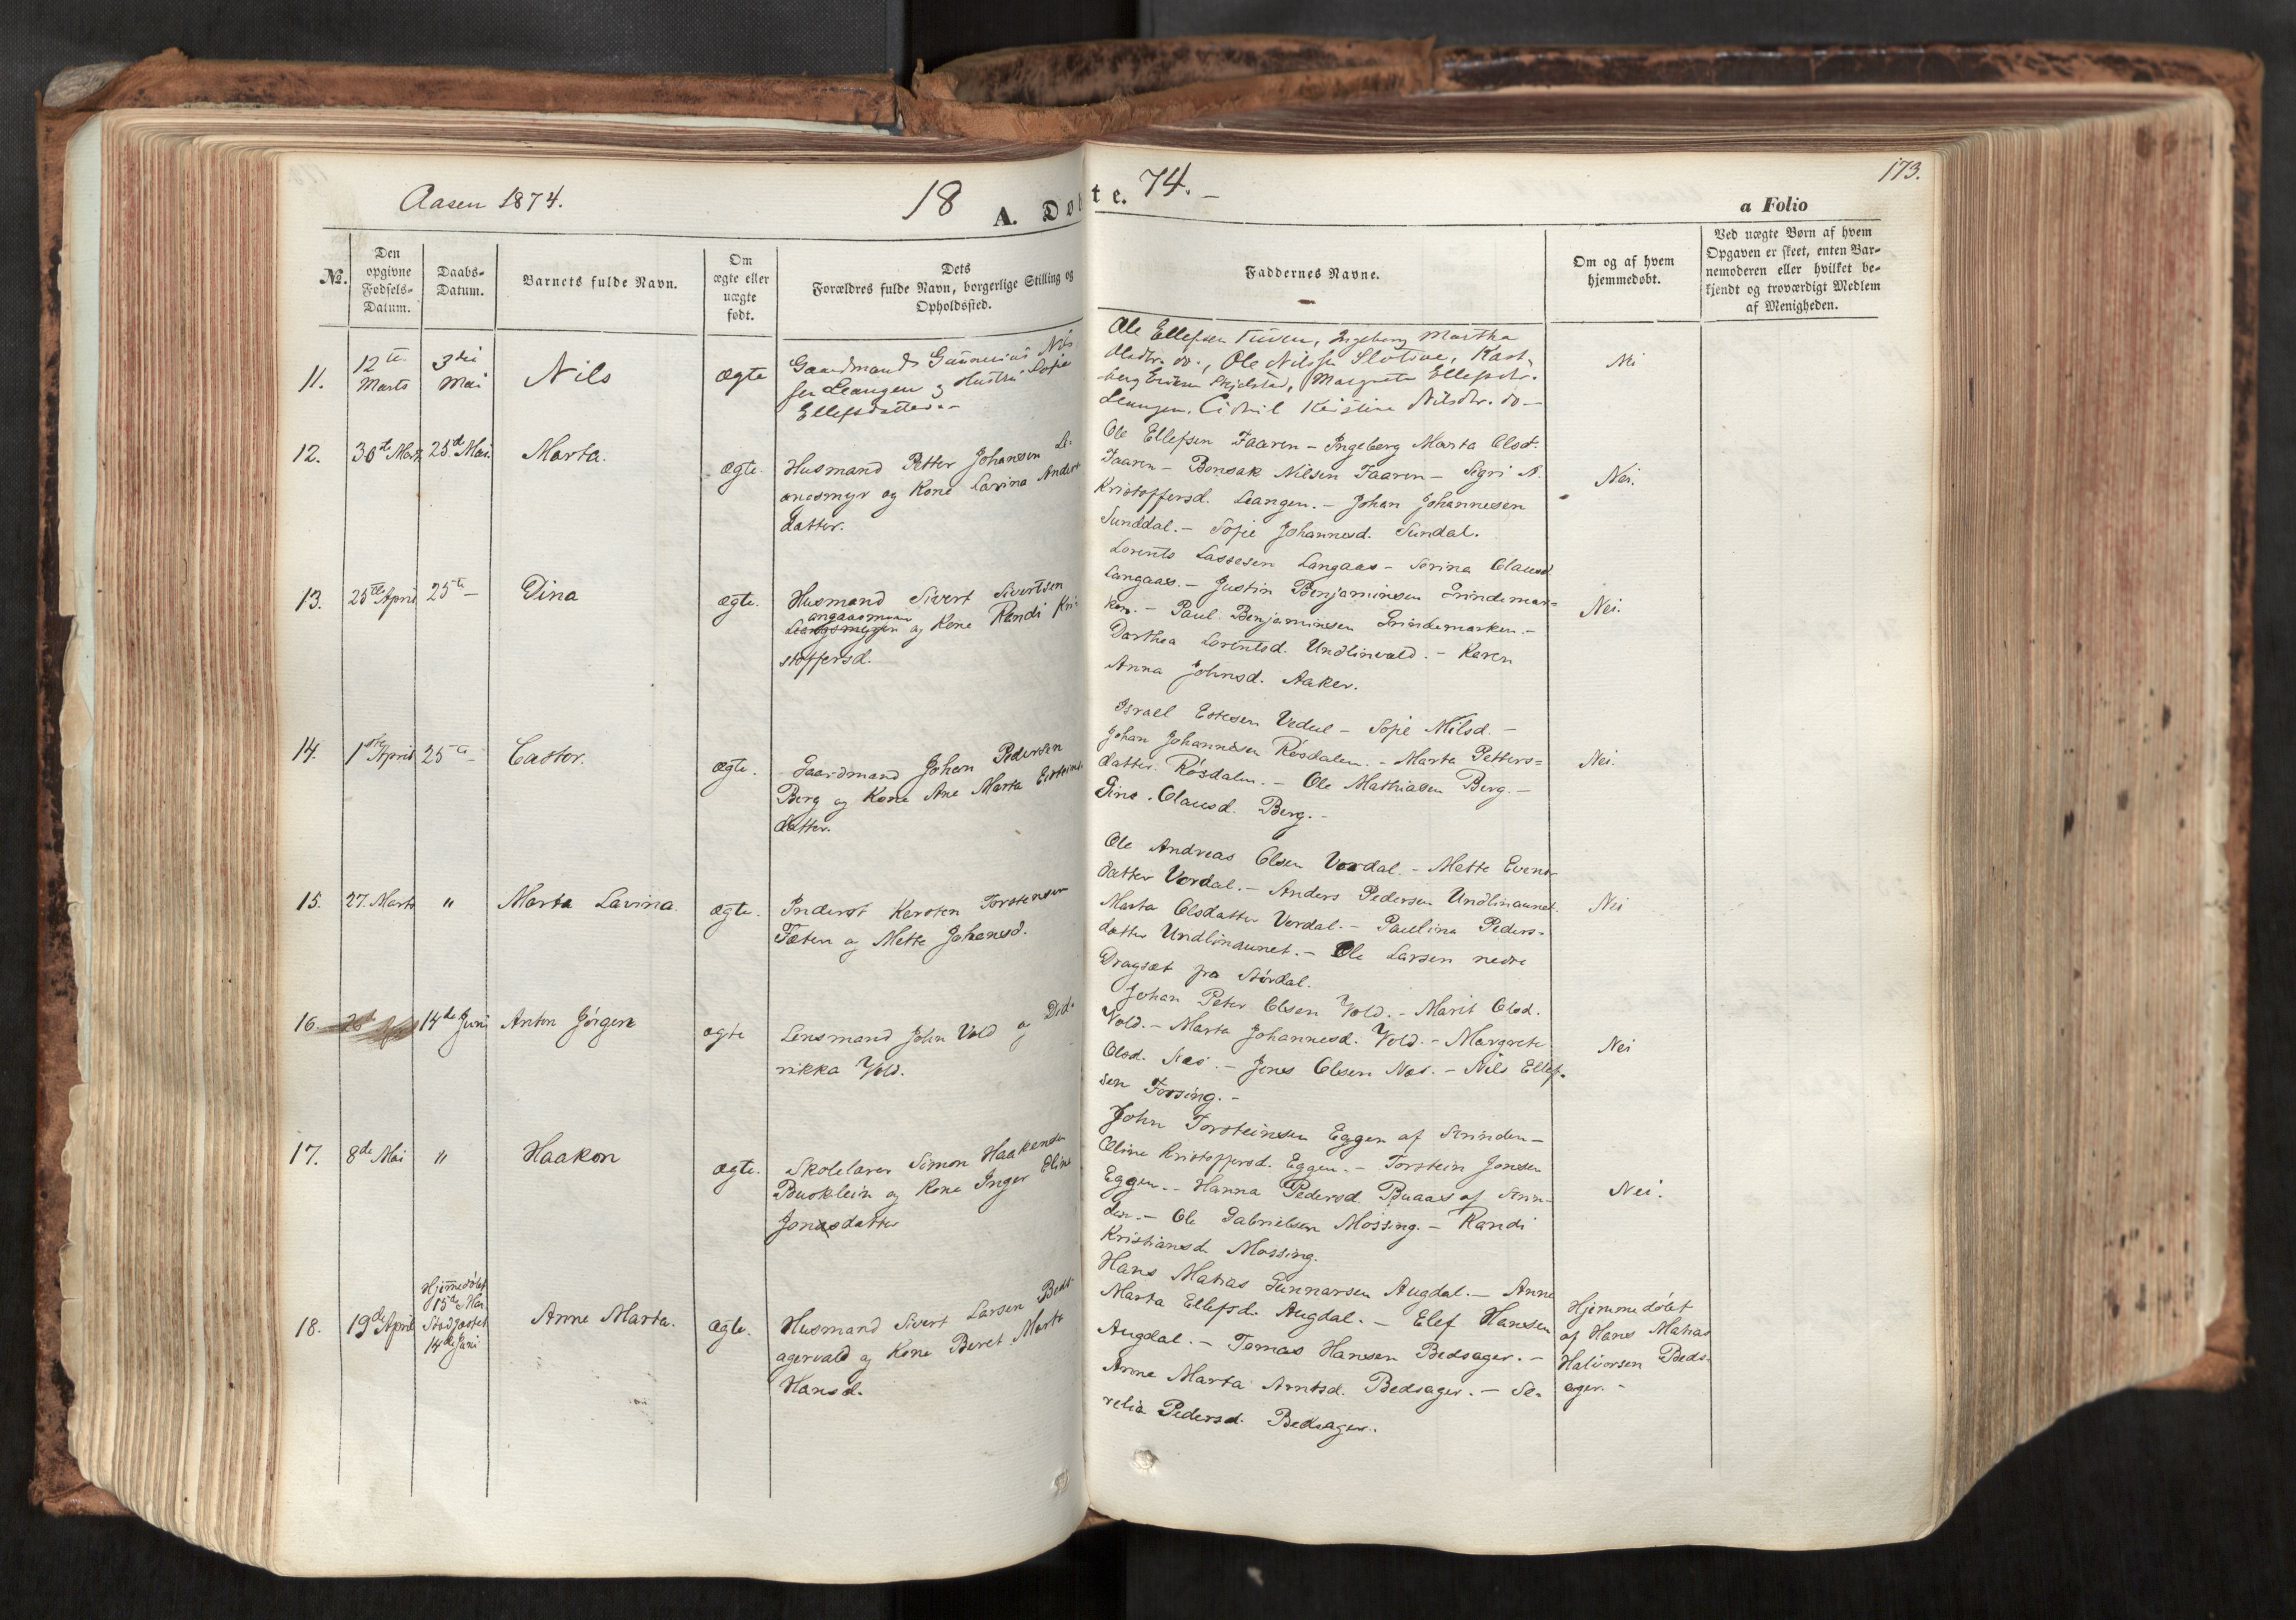 173.
Aasen 1874.
18 74. –
A. Døbte.
a Folio
№.
Den opgivne Fødsels-Datum.
Daabs-Datum.
Barnets fulde Navn.
Om ægte eller uægte født.
Dets Forældres fulde Navn, borgerlige Stilling og Opholdssted.
Faddernes Navne.
Om og af hvem hjemmedøbt.
Ved uægte Børn af hvem Opgaven er skeet, enten Barnemoderen eller hvilket bekjendt og troværdigt Medlem af Menigheden.
11.
12te Marts
3die Mai
Nils
ægte
Gaardmand Gunnerius Nils
sen Leangen og Hustru Sofie
Ellefsdatter.–
Ole Ellefsen Ingeborg Martha
Olsdtr. do., Ole Nilssen
Skjelstad, Margrete Ellefsdtr.
Leangen, Kristine Nilsdtr. do –
Nei
12.
30te Marts
25de Mai.
Marta.
Ægte.
Husmand Petter Johansen Le-
angsmyr og Kone Lavina Anders
datter.
Ole Ellefsen Faaren – Ingeborg Marta Olsd.
Faaren – Bonsak Nilsen Faaren – Sigri A.
Kristoffersd. Leangen. – Johan Johannesen
Sunddal. – Sofie Johannesd. Sundal.
Nei.
13.
25de April
25te –
Dina
ægte.
Husmand Sivert Sivertsen
og Kone Randi Kri-
stoffersd.
Lorents Lassesen Langaas – Serina Clausd.
Langaas. – Justin Benjaminsen Grindemar=
ken. – Paul Benjaminsen Grindemarken. –
Dorthea Lorentsd. Undlinvald. – Karen
Anna Johnsd. Aaker.
Nei.
14.
1ste April
25te –
Castor.
ægte.
Gaardmand Johan Pedersen
Berg og Kone Ane Marta
datter.
Israel Estesen Vedul – Sofie Nilsd. –
Johan Johannesen Røsdalen. – Marta Petters=
datter Røsdalen. – Ole Mathiasen Berg. –
Gine Clausd. Berg. –
Nei.
15.
27. Marts
"
Marta Lavina.
ægte.
Inderst Karsten Torstensen
Fæten og Mette Johansd.
Ole Andreas Olsen Vordal. – Mette Evens-
datter Vordal. – Anders Pedersen Undlinaunet.
Marta Olsdatter Vordal. – Paulina Peders-
datter Undlinaunet. – Ole Larsen nedre
Dragsæt fra Størdal.
Nei
16.
14de Juni
Anton Jørgen
ægte
Lensmand John Vold og Did-
rikka Vold.
Johan Peter Olsen Vold. – Marit Olsd.
Vold. – Marta Johannesd. Vold. – Margrete
Olsd. Næs. – Jens Olsen Næs. – Nils Ellef-
sen Fossing. –
Nei
17.
8de Mai
"
Haakon
ægte.
Skolelærer Simon Haakensen
Busklein og Kone Inger Eline
Jonasdatter
John Torsteinsen Eggen af Strinden –
Oline Kristoffersd. Eggen. – Torstein Jonsen
Eggen. – Hanna Pedersd. Buaas af Strin-
den. – Ole Gabrielsen Mossing. – Randi
Kristiansd. Mossing.
Nei.
18.
19de April
Hjemmedøbt
15de Mai
Stadfæstet
14de Juni
Anne Marta.
ægte.
Husmand Sivert Larsen Beds-
agervald og Kone Beret Marta
Hansd.
Hans Matias Gunnarsen Augdal. – Anne
Marta Ellefsd. Augdal. – Elef Hansen
Augdal. – Tomas Hansen Bedsager. –
Anne Marta Arntsd. Bedsager. – Se-
relia Pedersd. Bedsager.
Hjemmedøbt
af Hans Matias
Halvorsen Beds-
ager. –